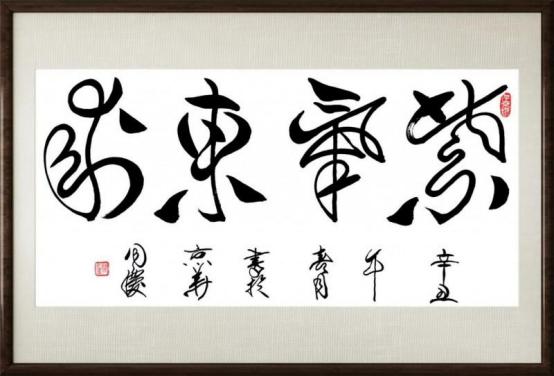 紫氣東來
辛丑年春月書於京華